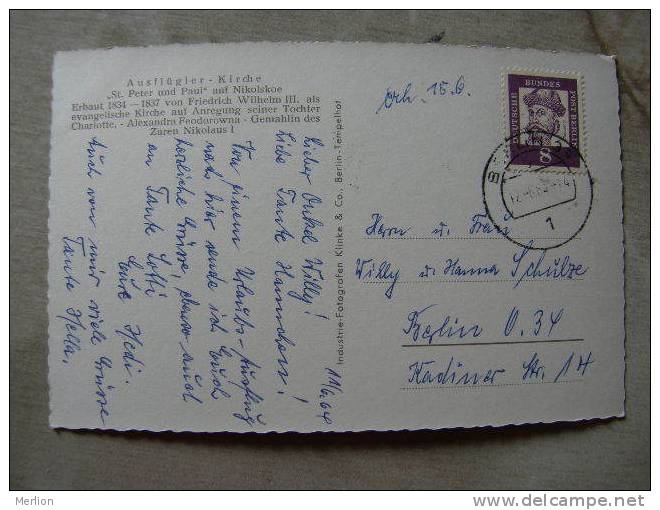 Ausflügler - Kirche
„St. Peter und Paul" auf Nikolskoe
Erbaut 1834—1837 von Friedrich Wilhelm III. als
evangelische Kirche auf Anregung seiner Tochter
Charlotte. - Alexandra Feodorowna - Gemahlin des
Zaren Nikolaus I
11/6.64
Lieber Onkel Willy!
Liebe Tante Hannchen!
Von einem Urlaubs-Ausflug
nach hier sende ich Euch
herzliche Grüsse, ebenso auch
an Tante Lotti
Eure Hedi.
Auch von mir viele Grüsse
Tante Hella.
Industrie-Fotografen Klinke & Co., Berlin-Tempelhof
erh. 15.6.
DEUTSCHE BUNDES POST BERLIN
8
1
Herrn u. Frau
Willy u. Hanna Schulze
Berlin O. 34
Kadiner Str. 14
Merlion
www.delcampe.net